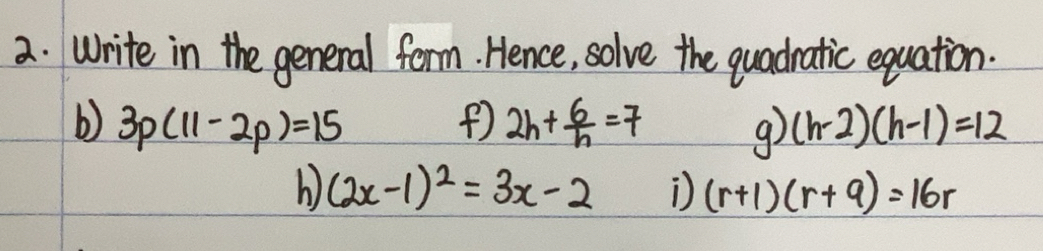 2. Write in the general form. Hence, solve the quadratic equation.
b) 3p(11-2p)=15 f) 2h+6/h=7 g)(h-2)(h-1)=12
h)(2x-1)²=3x-2 i)(r+1)(r+9)=16r